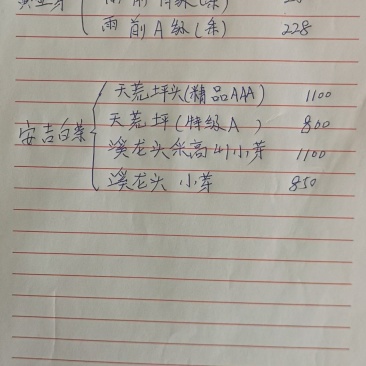 雨前A级(条) 228
天荒坪头(精品AAA) 1100
天荒坪(特级A) 800
安吉白茶
溪龙头采高山小芽 1100
溪龙头小芽 850